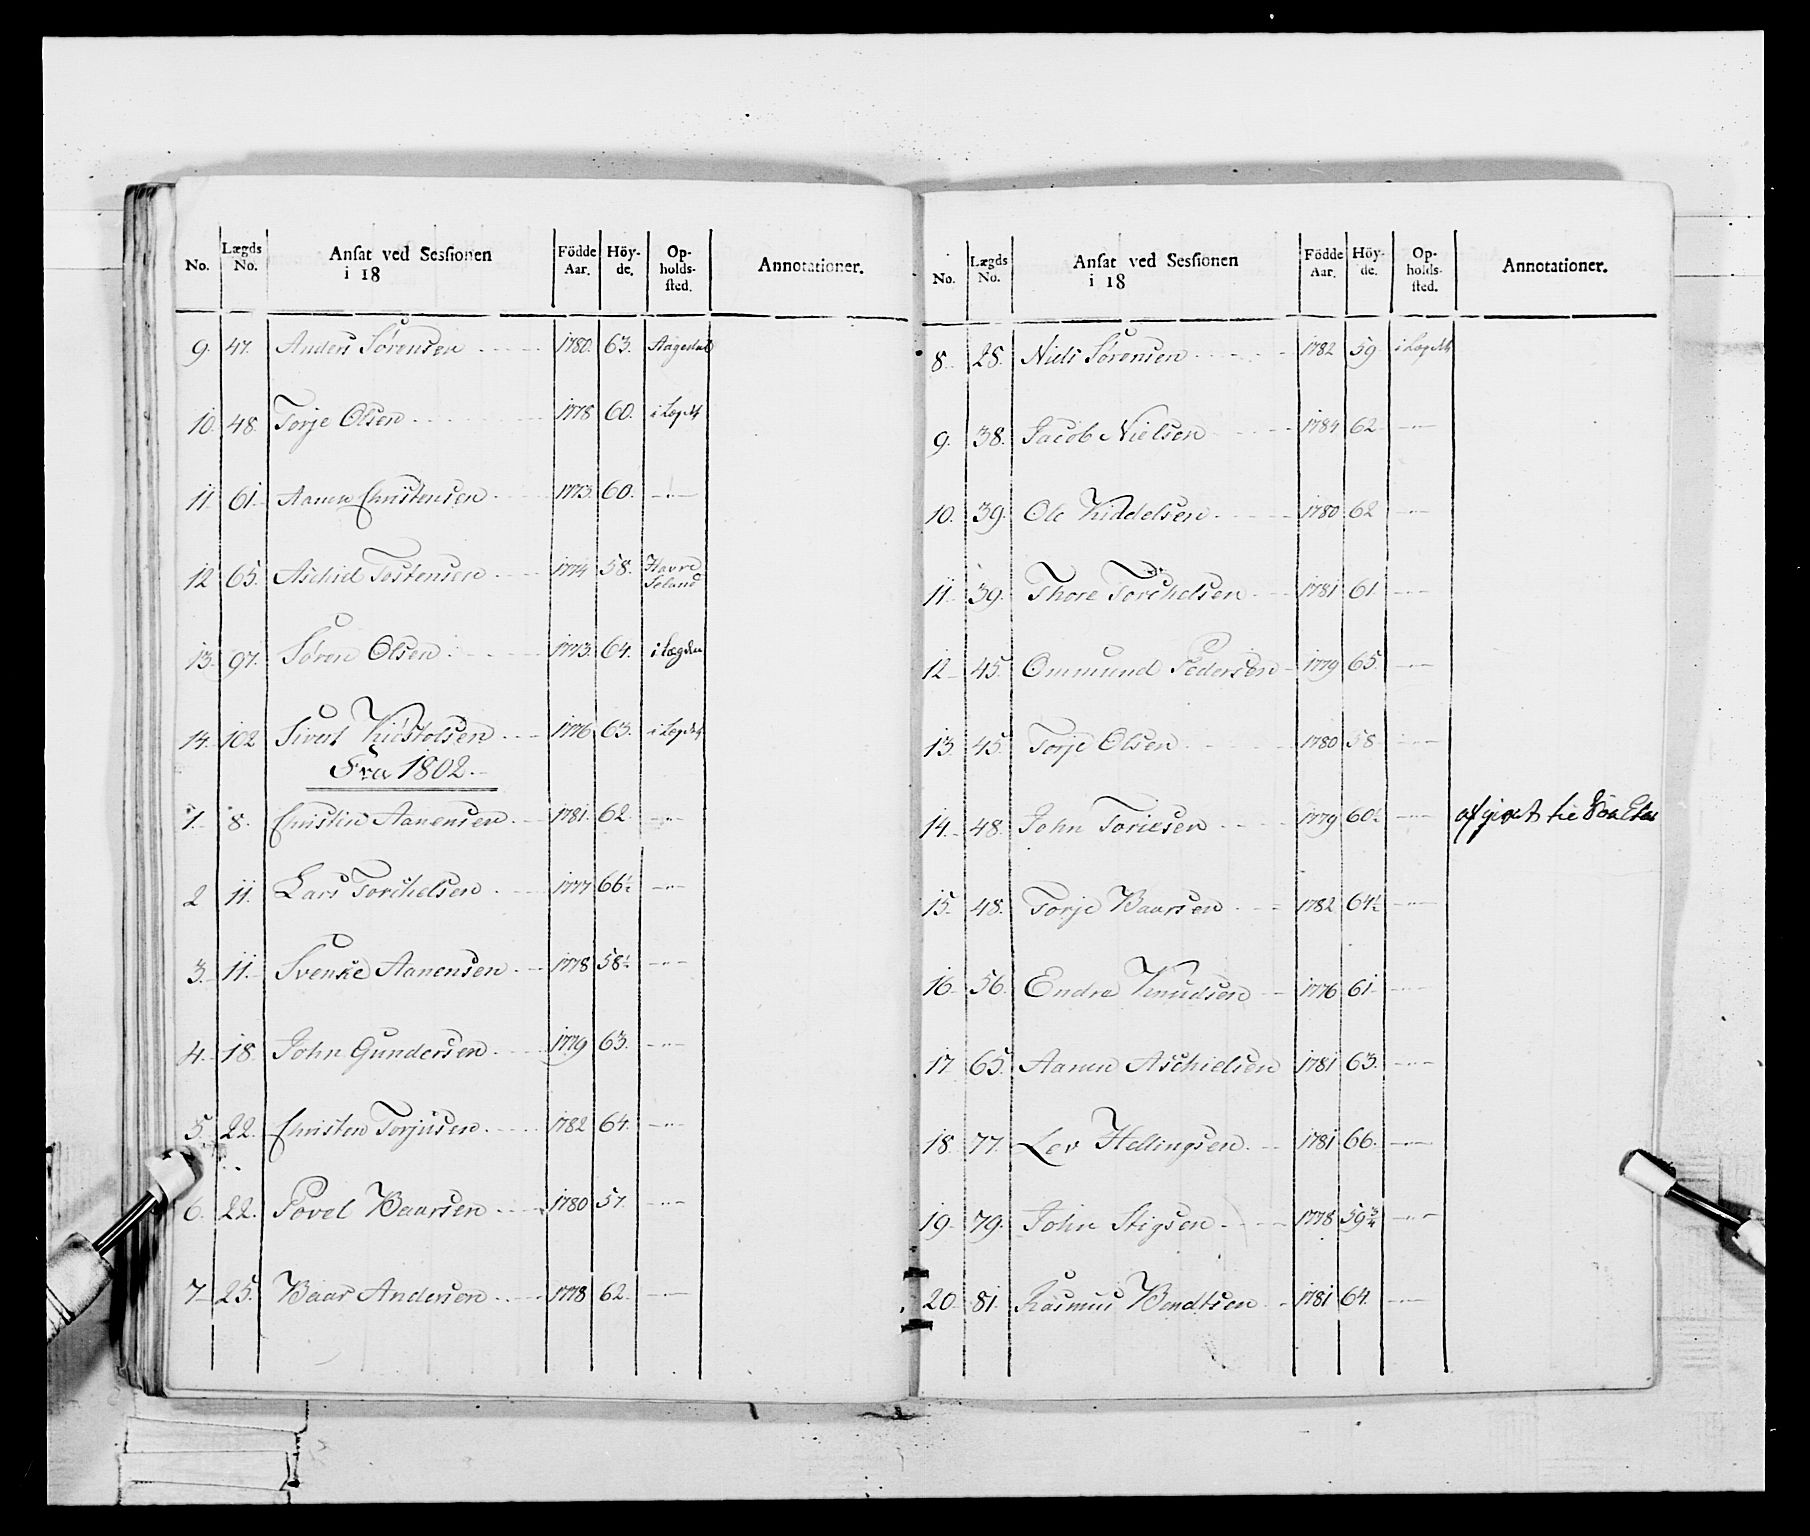 No. Lægds No. Ansat ved Sessionen i 18 Födde Aar. Höy-de. Op-holds-sted. Annotationer.
9. 47. Anders Sörensen 1780. 63. Aagedal
10. 48. Torje Olsen 1778 60. i Legdet
11. 61. Aanen Christensen 1773. 60. -"-
12 65. Aschid Tostensen 1774 58. Havre
Seland
13. 97. Sören Olsen 1773. 64. i Legden
14. 102 Sivert Kiöstolsen 1776 63. i Legdet
Fra 1802.
1. 8. Christin Aanensen 1781. 62. -"-
2 11. Lars Torchelsen 1777 66½ -"-
3. 11. Svenke Aanensen 1778 58½ -"-
4. 18 John Gundersen 1779 63. -"-
5. 22. Christen Torjusen 1782 64. -"-
6. 22. Povel Baarsen 1780 57. -"-
7 25. Baar Andersen 1778 62. -"-
No. Lægds No. Ansat ved Sessionen i 18 Födde Aar. Höy-de. Op-holds-sted. Annotationer.
8. 28. Niels Sörensen 1782 59 i Legdet
9. 38. Jacob Nielsen 1784 62 -"-
10. 39. Ole Kiddelsen 1780 62 -"-
11. 39. Thore Torchelsen 1781 61 -"-
12 45. Ommund Pedersen 1779 65. -"-
13 45. Torje Olsen 1780 58 -"-
14. 48. John Toriesen 1779 60½ -"- afgivet til
15. 48. Torje Baarsen 1782 64½ -"-
16 56. Endre Knudsen 1776 61 -"-
17 65. Aanen Aschielsen 1781 63. -"-
18. 77. Lev Hellingsen 1781 66. -"-
19 79. John Stigsen 1778 59¾ -"-
20. 81. Rasmus Bendtsen 1781 64. -"-